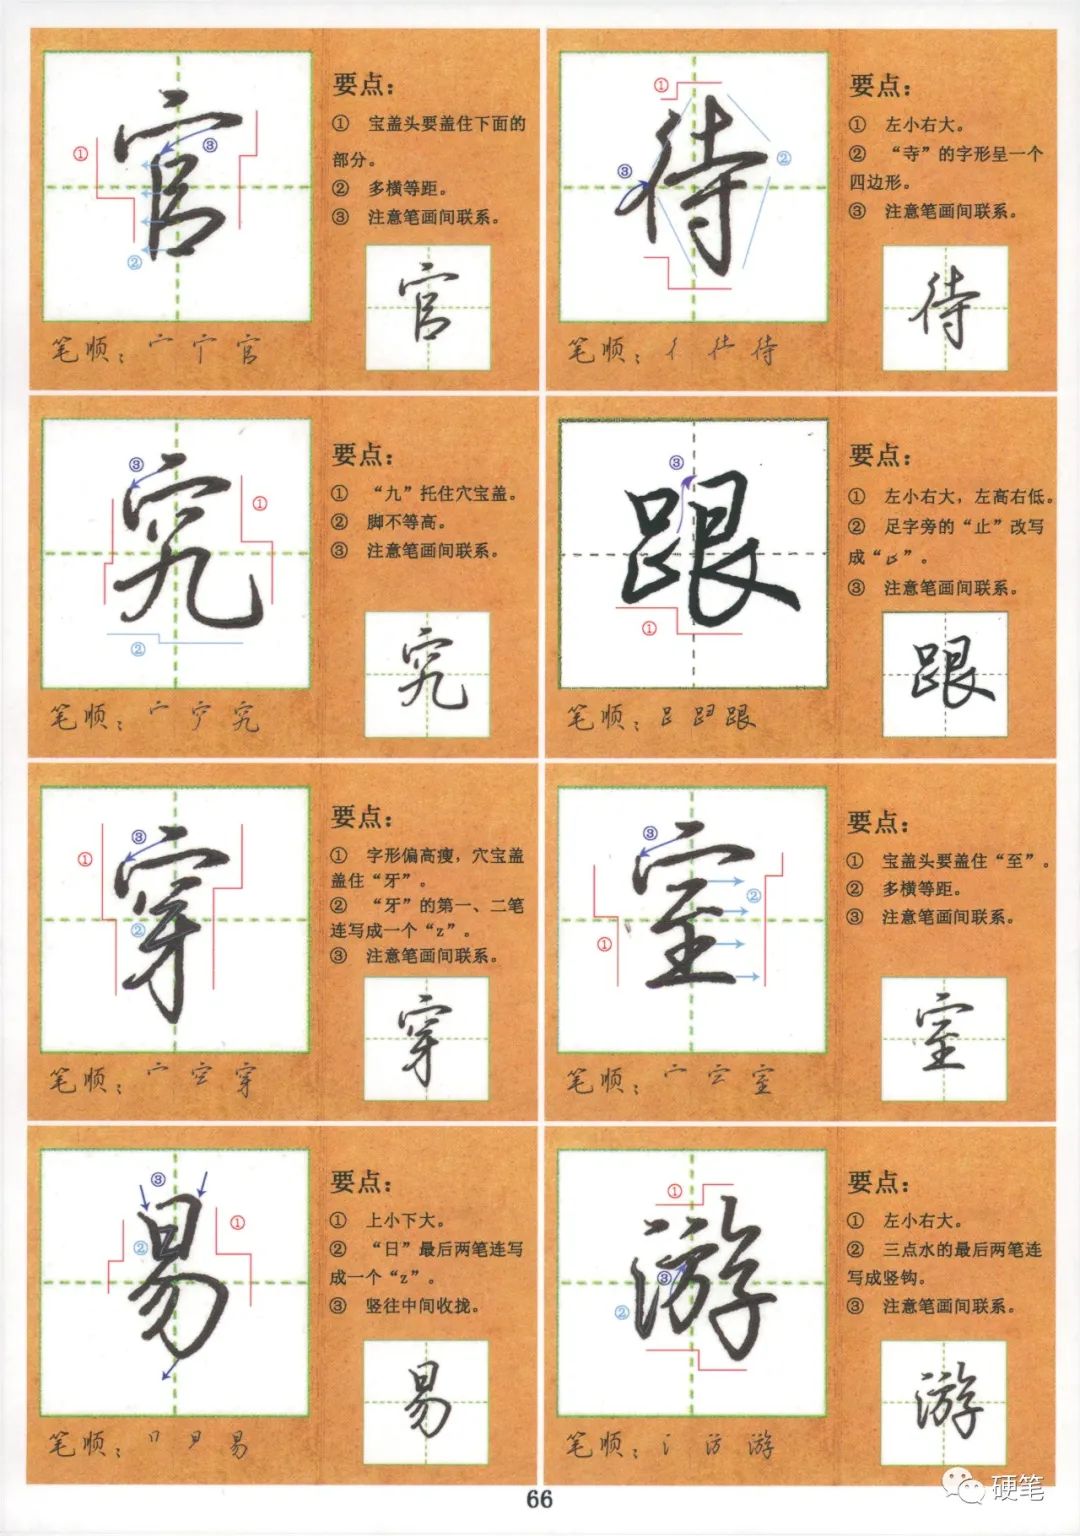 官
要点：
① 宝盖头要盖住下面的
部分。
② 多横等距。
③ 注意笔画间联系。
①
③
②
官
笔顺：宀 官
待
要点：
① 左小右大。
② “寺”的字形呈一个
四边形。
③ 注意笔画间联系。
①
②
③
待
笔顺：彳 待
究
要点：
① “九”托住穴宝盖。
② 脚不等高。
③ 注意笔画间联系。
③
①
②
究
笔顺：宀 究
跟
要点：
① 左小右大，左高右低。
② 足字旁的“止”改写
成“ ”。
③ 注意笔画间联系。
③
①
跟
笔顺：跟
穿
要点：
① 字形偏高瘦，穴宝盖
盖住“牙”。
② “牙”的第一、二笔
连写成一个“z”。
③ 注意笔画间联系。
③
①
②
穿
笔顺：宀 穿
室
要点：
① 宝盖头要盖住“至”。
② 多横等距。
③ 注意笔画间联系。
③
②
①
室
笔顺：宀 室
易
要点：
① 上小下大。
② “日”最后两笔连写
成一个“z”。
③ 竖往中间收拢。
③
①
②
易
笔顺：易
游
要点：
① 左小右大。
② 三点水的最后两笔连
写成竖钩。
③ 注意笔画间联系。
①
③
②
游
笔顺：氵 游
66
硬笔